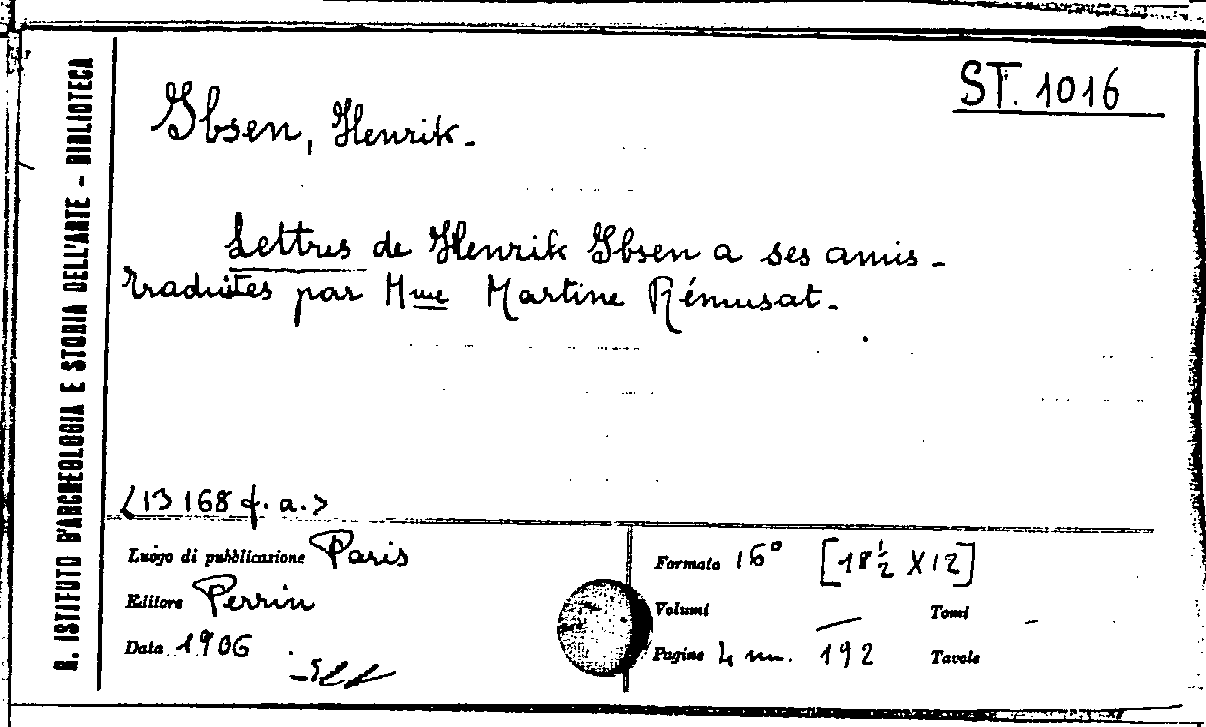 R. ISTITUTO D'ARCHEOLOGIA E STORIA DELL'ARTE - BIBLIOTECA
ST. 1016
Ibsen, Henrik.
Lettres de Henrik Ibsen a ses amis -
traduites par Mme Martine Rémusat.
<13168 f. a.>
Luogo di pubblicazione Paris
Editore Perrin
Data 1906
Formato 16° [18½ X 12]
Volumi
Tomi
Pagine 4 nn. 192
Tavole